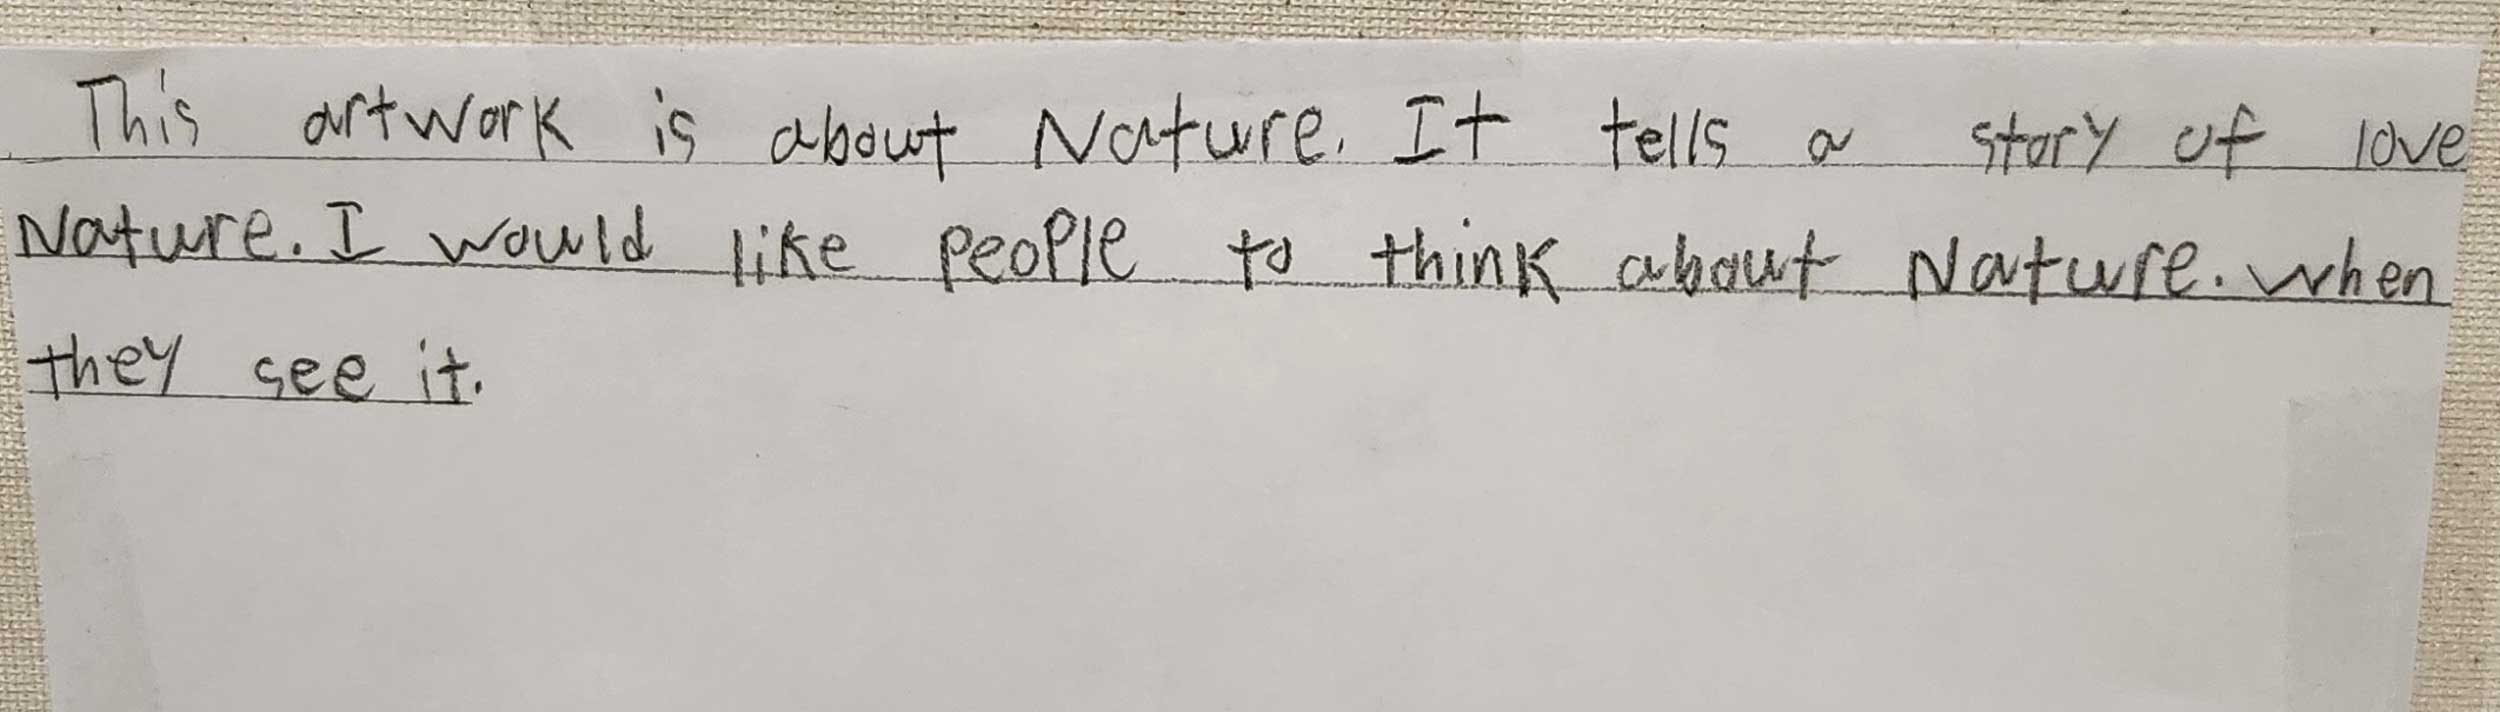 This artwork is about Nature. It tells a story of love
Nature. I would like people to think about Nature. when
they see it.